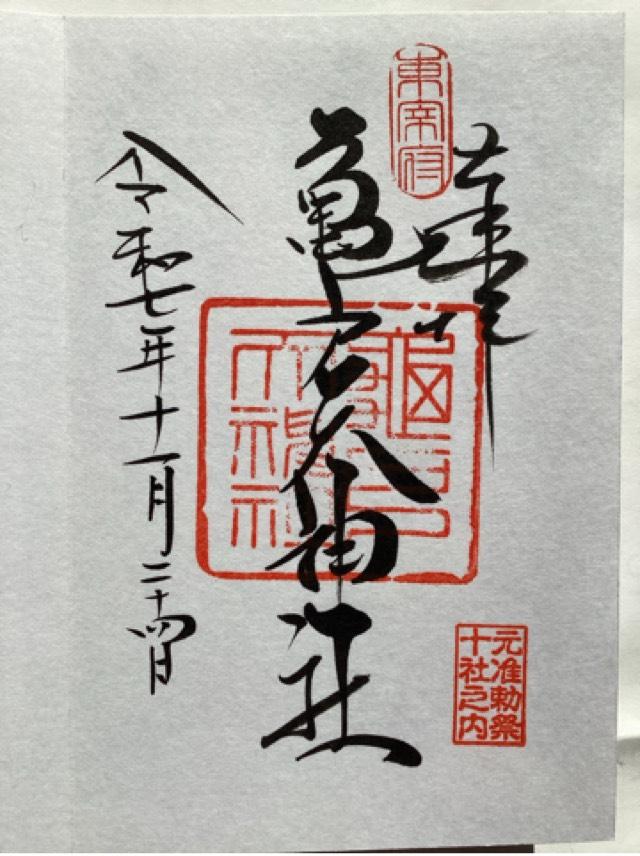 奉拝
東宰府
亀戸天神社
元准勅祭
十社之内
令和七年十一月二十四日